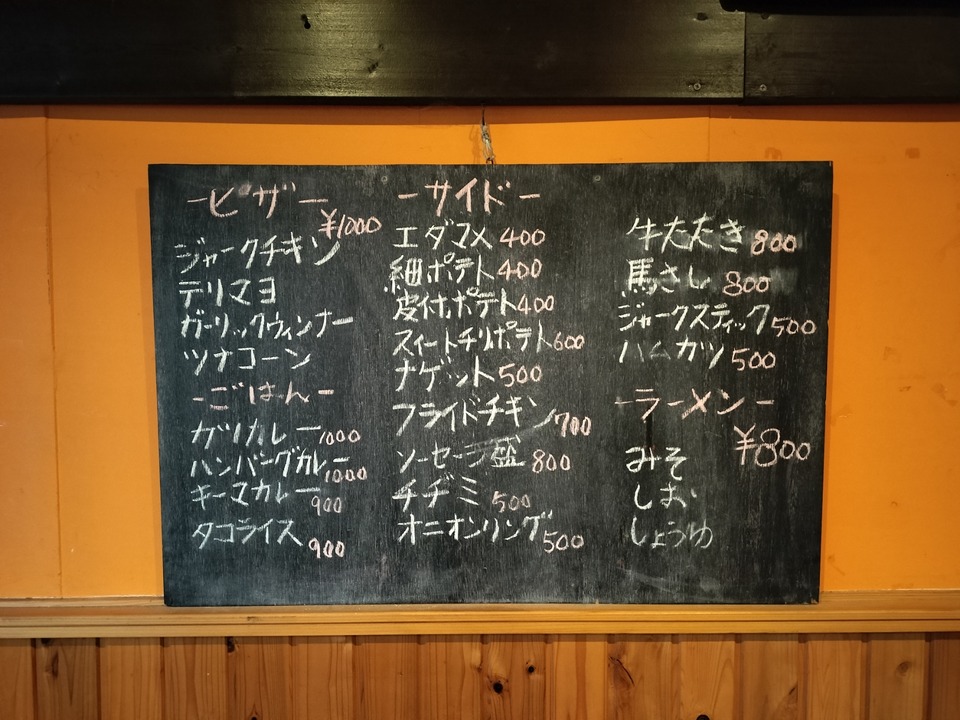 -ピザー
¥1000
ジャークチキン
テリマヨ
ガーリックウィンナー
ツナコーン
-ごはん-
ガツカレー1000
ハンバーグカレー1000
キーマカレー900
タコライス900
-サイド-
エダマメ400
細ポテト400
皮付ポテト400
スイートチリポテト600
ナゲット500
フライドチキン700
ソーセージ盛800
チヂミ500
オニオンリング500
牛たたき800
馬さし800
ジャークスティック500
ハムカツ500
-ラーメン-
¥800
みそ
しお
しょうゆ